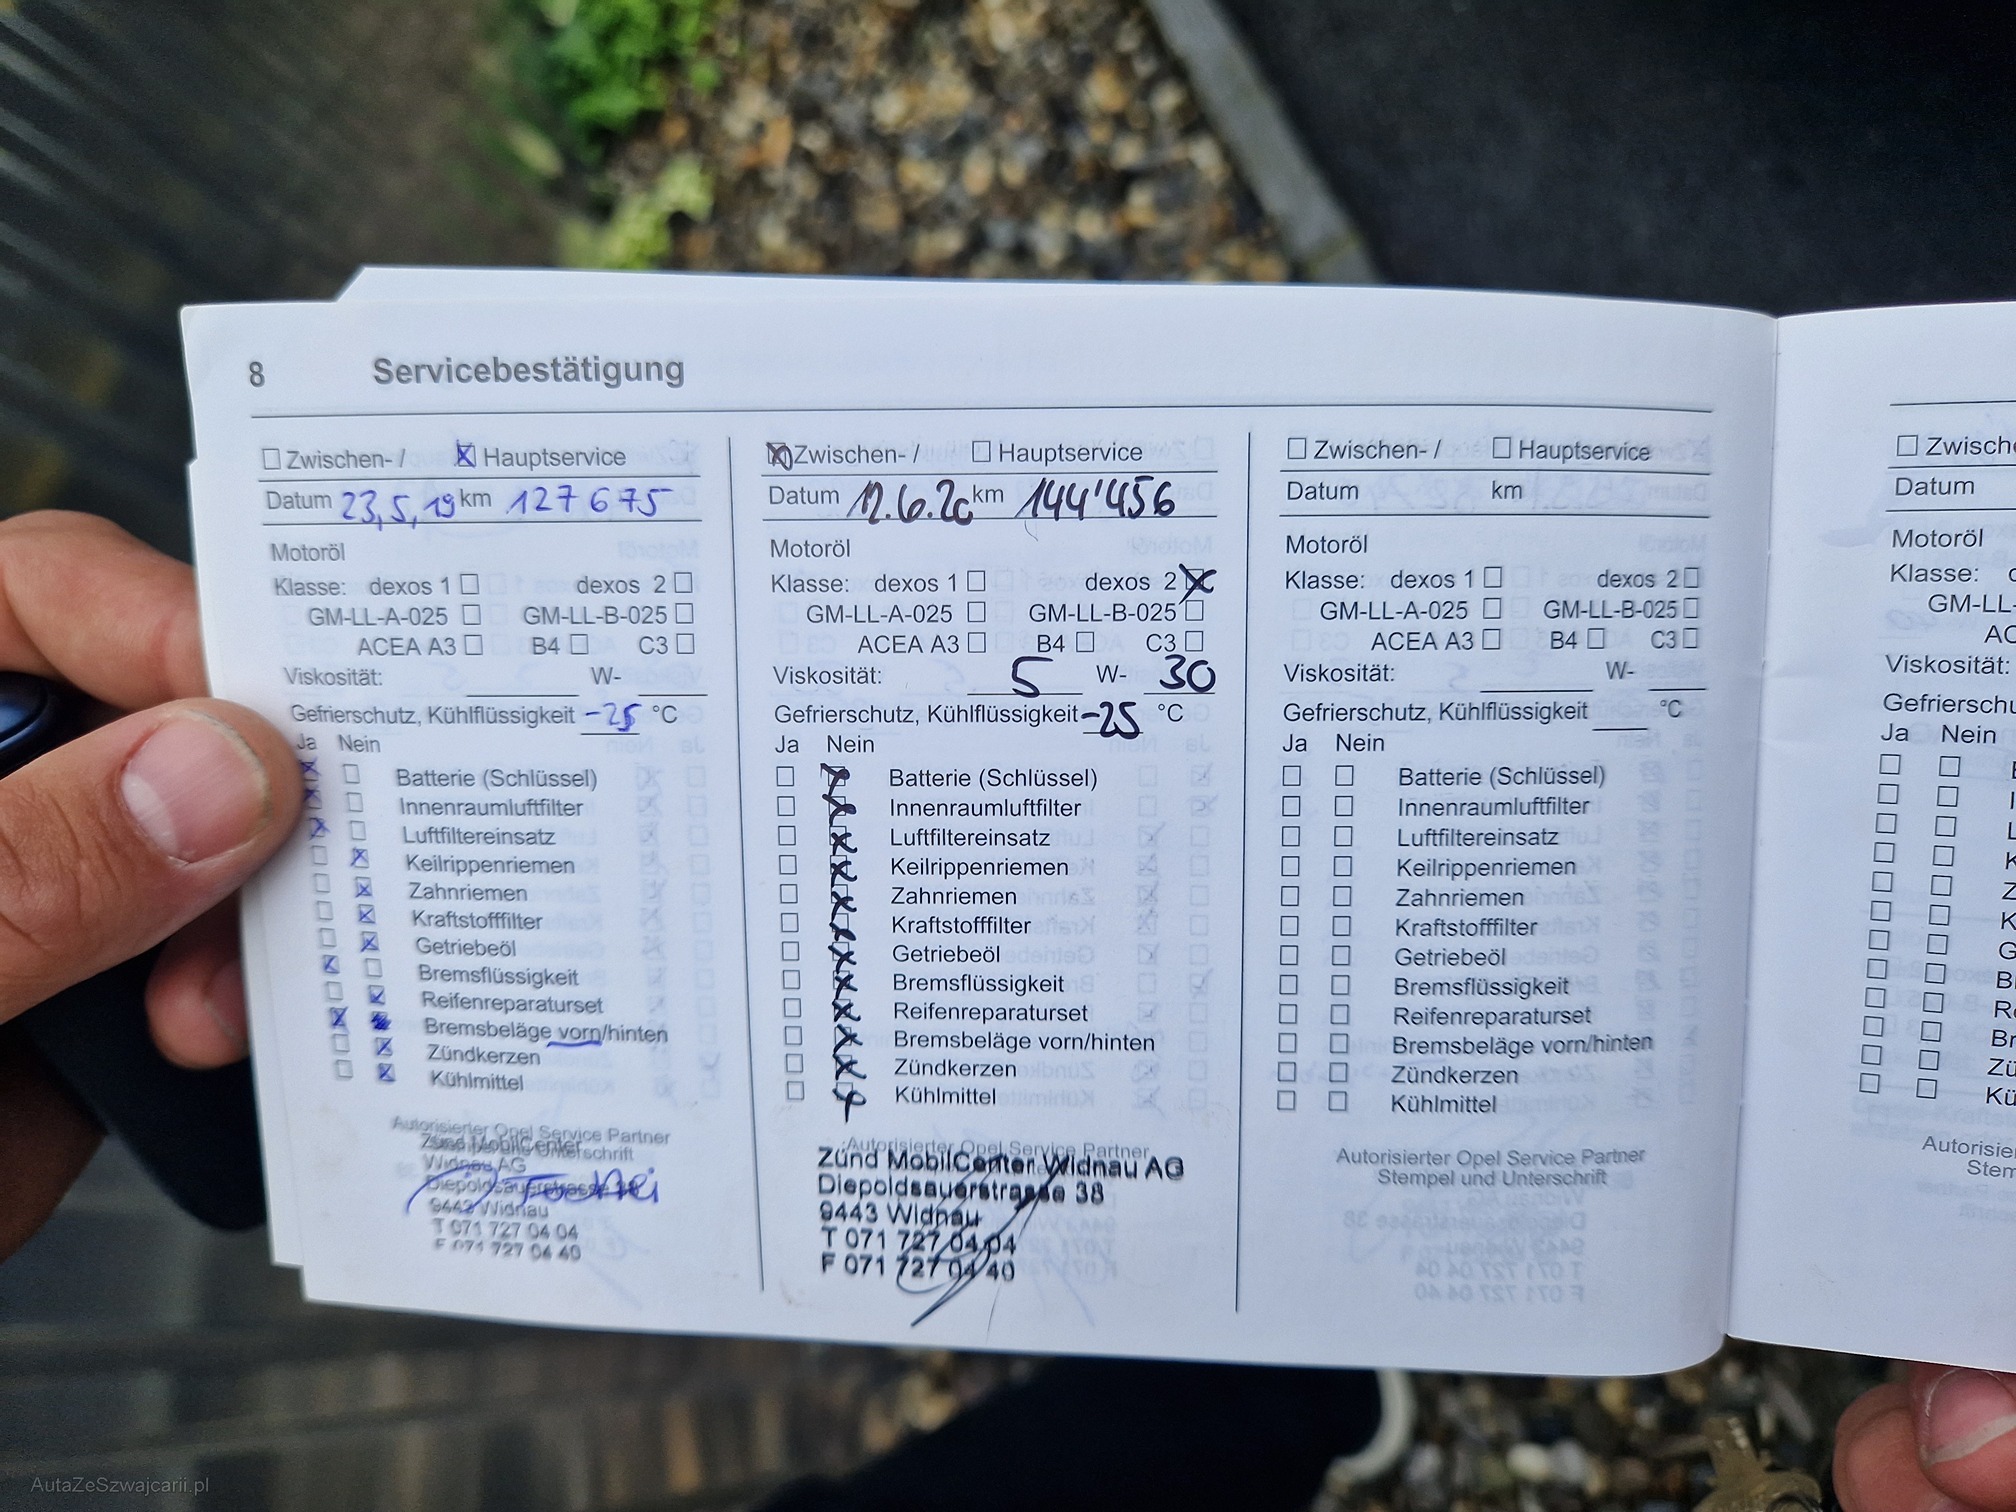 8 Servicebestätigung
☐ Zwischen- / ☒ Hauptservice
Datum 23,5,19 km 127675
Motoröl
Klasse: dexos 1 ☐ dexos 2 ☐
GM-LL-A-025 ☐ GM-LL-B-025 ☐
ACEA A3 ☐ B4 ☐ C3 ☐
Viskosität: W-
Gefrierschutz, Kühlflüssigkeit -25 °C
Ja Nein
☒ ☐ Batterie (Schlüssel)
☒ ☐ Innenraumluftfilter
☒ ☐ Luftfiltereinsatz
☐ ☒ Keilrippenriemen
☐ ☒ Zahnriemen
☐ ☒ Kraftstofffilter
☐ ☒ Getriebeöl
☒ ☐ Bremsflüssigkeit
☐ ☒ Reifenreparaturset
☒ Bremsbeläge vorn/hinten
☐ ☒ Zündkerzen
☐ ☒ Kühlmittel
Autorisierter Opel Service Partner
Zünd MobilCenter
Widnau AG
Diepoldsauerstrasse
9443 Widnau
T 071 727 04 04
F 071 727 04 40
☒ Zwischen- / ☐ Hauptservice
Datum 12.6.20 km 144'456
Motoröl
Klasse: dexos 1 ☐ dexos 2 ☒
GM-LL-A-025 ☐ GM-LL-B-025 ☐
ACEA A3 ☐ B4 ☐ C3 ☐
Viskosität: 5 W- 30
Gefrierschutz, Kühlflüssigkeit -25 °C
Ja Nein
☐ ☒ Batterie (Schlüssel)
☐ ☒ Innenraumluftfilter
☐ ☒ Luftfiltereinsatz
☐ ☒ Keilrippenriemen
☐ ☒ Zahnriemen
☐ ☒ Kraftstofffilter
☐ ☒ Getriebeöl
☐ ☒ Bremsflüssigkeit
☐ ☒ Reifenreparaturset
☐ ☒ Bremsbeläge vorn/hinten
☐ ☒ Zündkerzen
☐ ☒ Kühlmittel
Autorisierter Opel Service Partner
Zünd MobilCenter Widnau AG
Diepoldsauerstrasse 38
9443 Widnau
T 071 727 04 04
F 071 727 04 40
☐ Zwischen- / ☐ Hauptservice
Datum km
Motoröl
Klasse: dexos 1 ☐ dexos 2 ☐
GM-LL-A-025 ☐ GM-LL-B-025 ☐
ACEA A3 ☐ B4 ☐ C3 ☐
Viskosität: W-
Gefrierschutz, Kühlflüssigkeit °C
Ja Nein
☐ ☐ Batterie (Schlüssel)
☐ ☐ Innenraumluftfilter
☐ ☐ Luftfiltereinsatz
☐ ☐ Keilrippenriemen
☐ ☐ Zahnriemen
☐ ☐ Kraftstofffilter
☐ ☐ Getriebeöl
☐ ☐ Bremsflüssigkeit
☐ ☐ Reifenreparaturset
☐ ☐ Bremsbeläge vorn/hinten
☐ ☐ Zündkerzen
☐ ☐ Kühlmittel
Autorisierter Opel Service Partner
Stempel und Unterschrift
☐ Zwisch
Datum
Motoröl
Klasse:
GM-LL-
AC
Viskosität:
Gefrierschu
Ja Nein
Autorisier
Stem
AutaZeSzwajcarii.pl